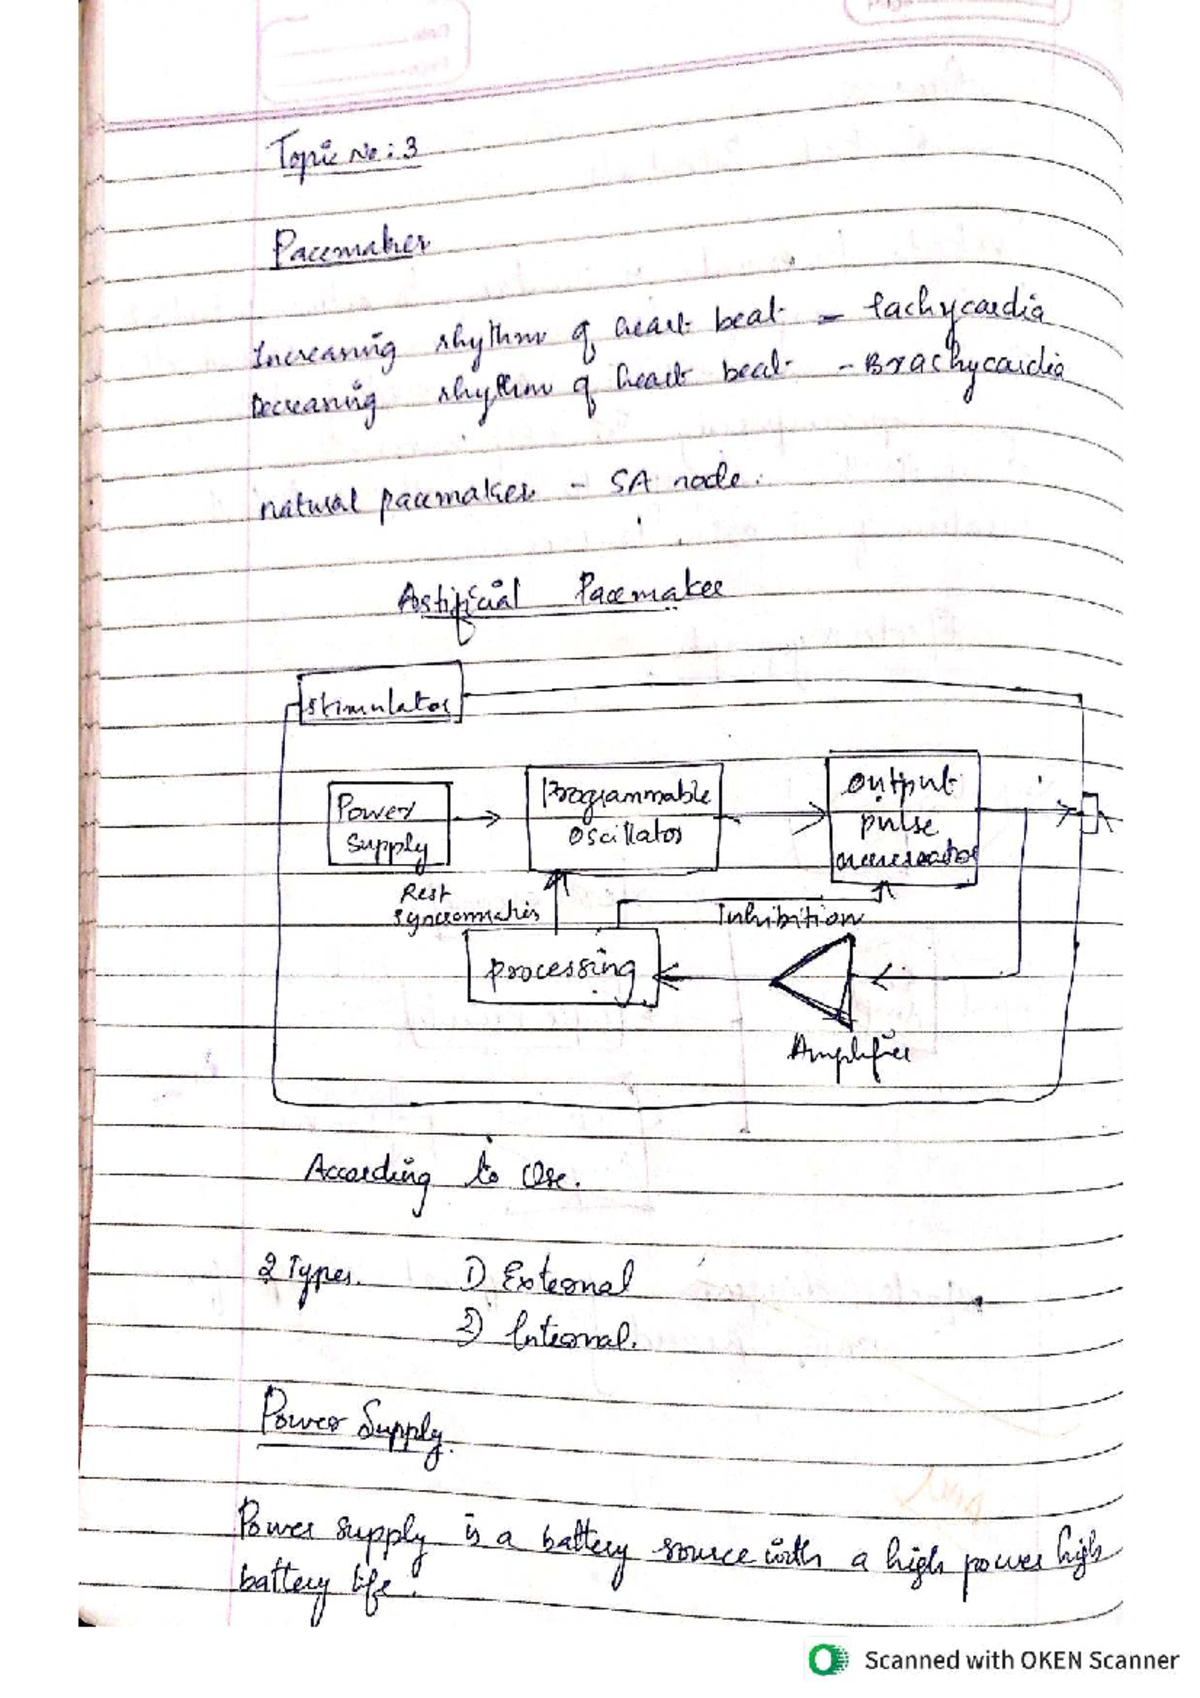 Topic No: 3
Pacemaker
Increasing rhythm of heart beat - tachycardia
Decreasing rhythm of heart beat - Brachycardia
natural pacemaker - SA node.
Artificial Pacemaker
Stimulator
Power
supply
Programmable
Oscillator
output
pulse
Rest
Inhibition
processing
Amplifier
According to Use.
2 Types. 1) External
2) Internal.
Power Supply.
Power supply is a battery source with a high power high
battery life.
Scanned with OKEN Scanner